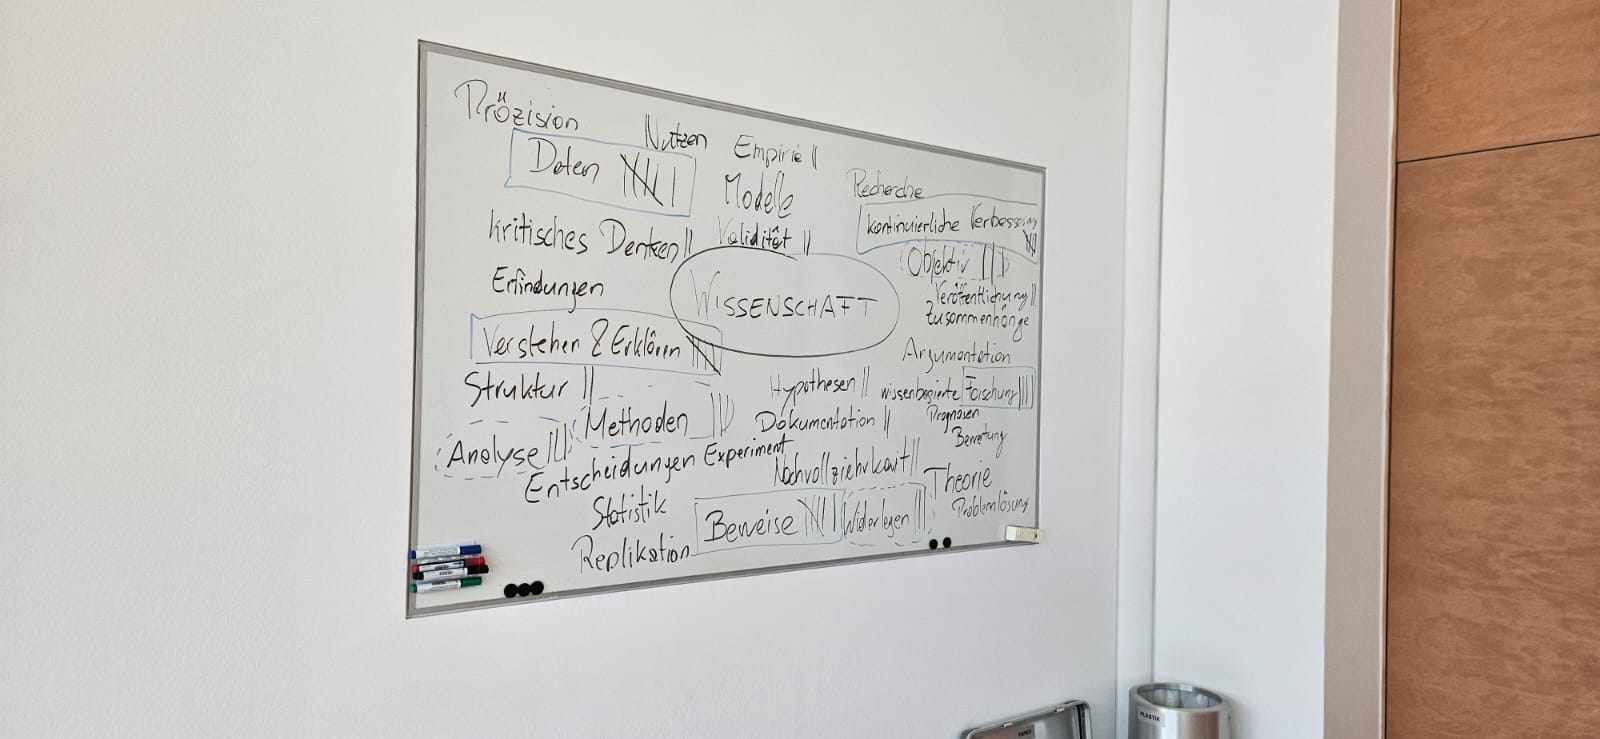 Präzision
Nutzen
Empirie ||
Daten
Modelle
Recherche
kontinuierliche Verbesserung
kritisches Denken ||
Validität ||
Objektiv |||
Erfindungen
WISSENSCHAFT
Veröffentlichung ||
Zusammenhänge
Verstehen & Erklären
Argumentation
Struktur ||
Hypothesen ||
wissenbasierte Forschung |||
Methoden |||
Dokumentation ||
Prognosen
Bewertung
Analyse |||
Entscheidungen
Experiment
Nachvollziehbarkeit ||
Theorie
Statistik
Beweise
Widerlegen |||
Problemlösung
Replikation
PLASTIK